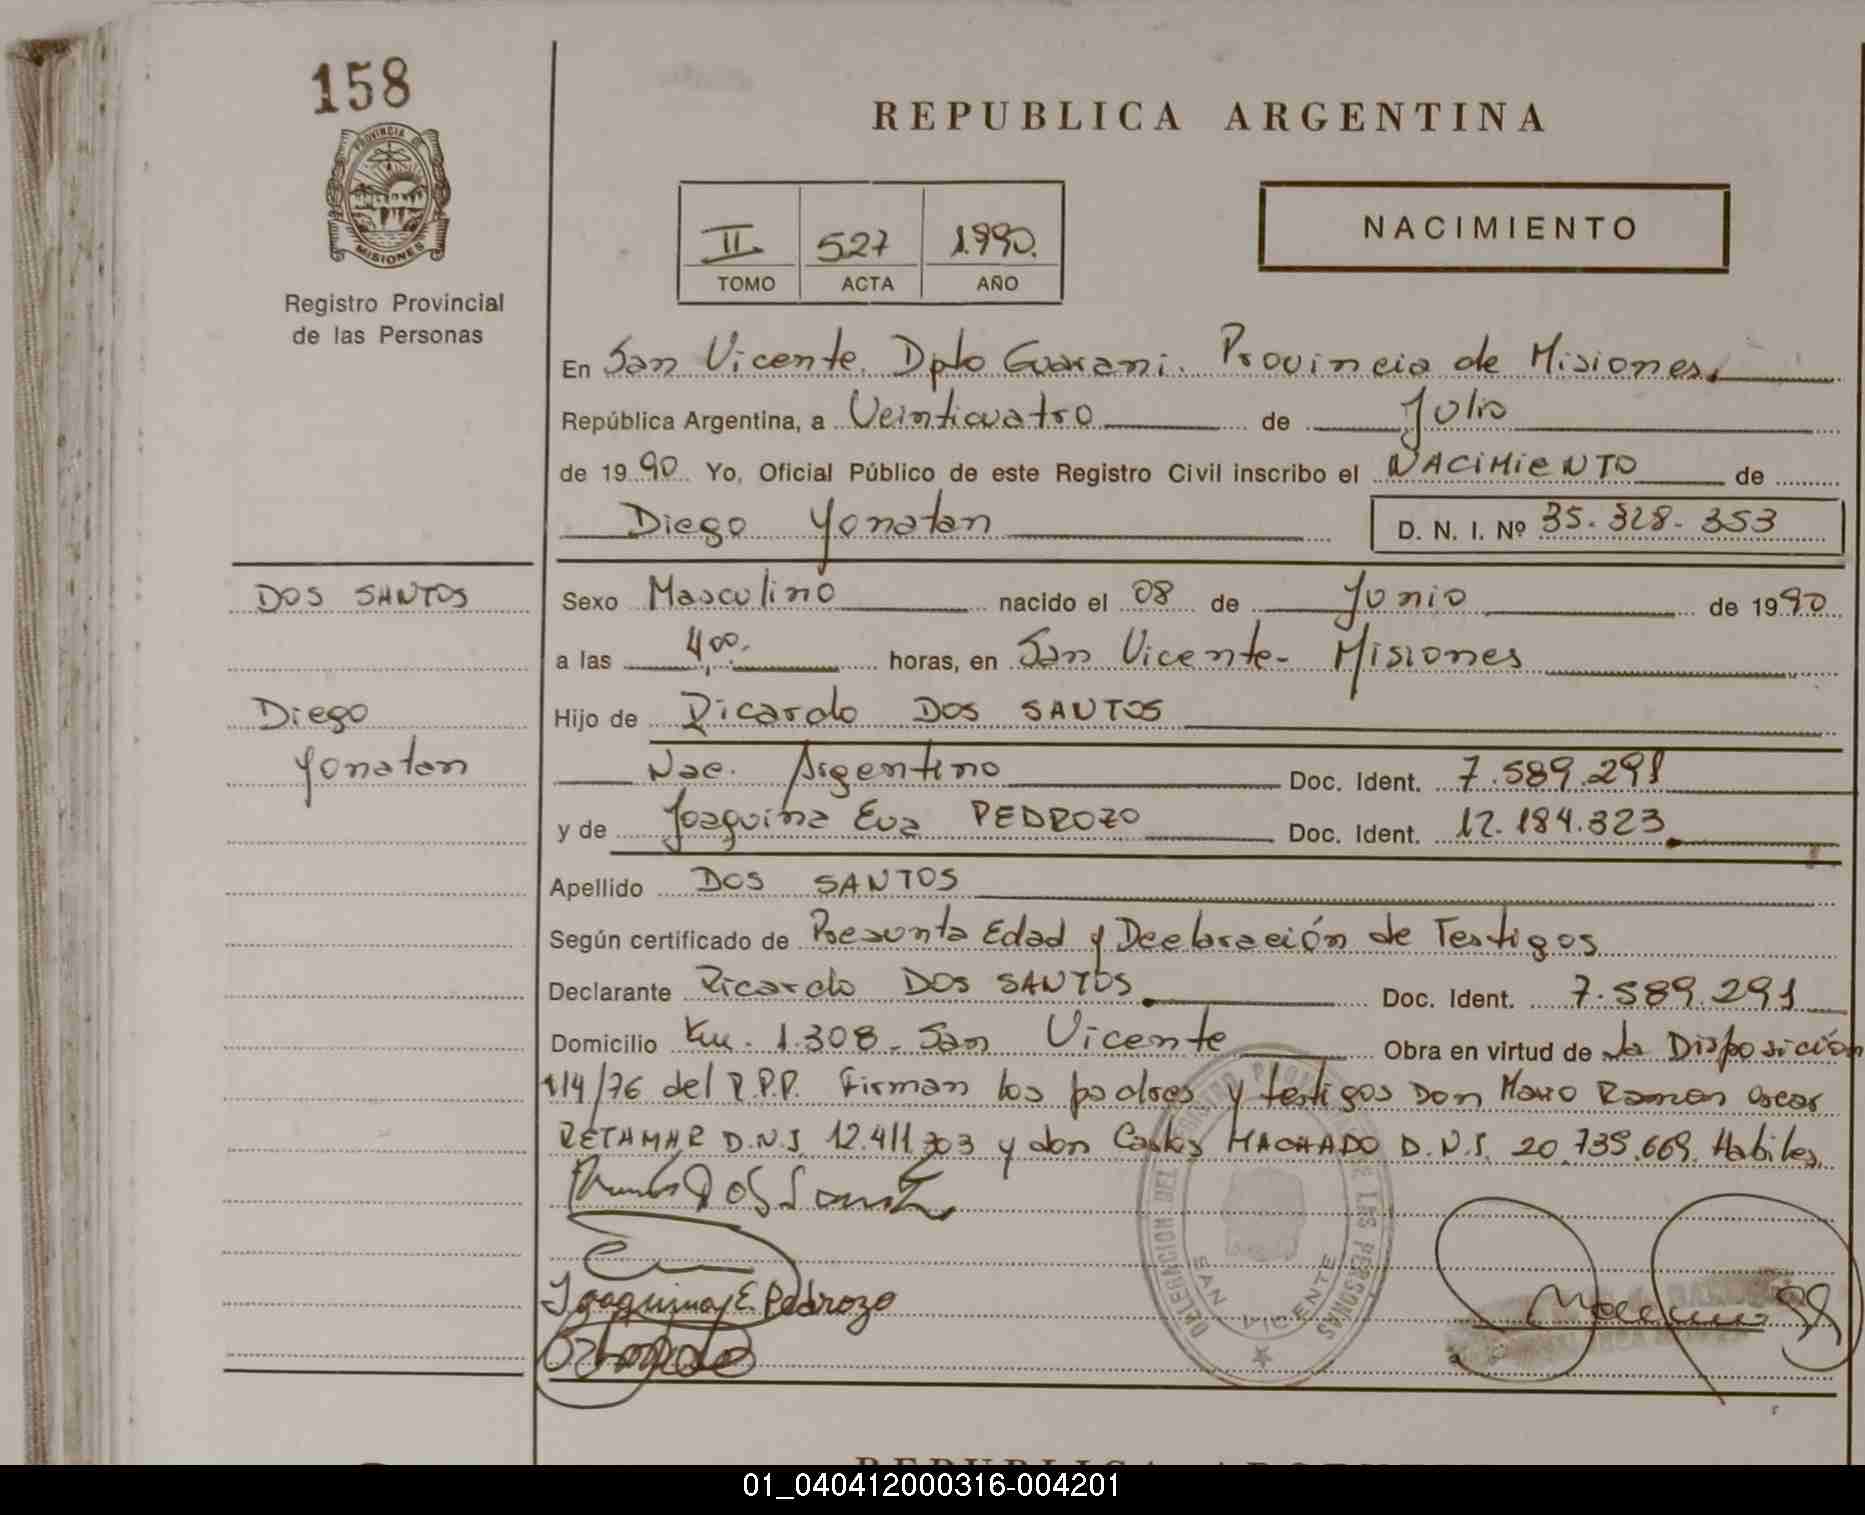 158
PROVINCIA DE
MISIONES
Registro Provincial
de las Personas
REPUBLICA ARGENTINA
NACIMIENTO
II 527 1.990.
TOMO ACTA AÑO
En San Vicente. Dpto Guarani. Provincia de Misiones.
República Argentina, a Veinticuatro de Julio
de 1990 Yo, Oficial Público de este Registro Civil inscribo el NACIMIENTO de
Diego Yonatan D. N. I. Nº 35.328.353
DOS SANTOS
Diego
Yonatan
Sexo Masculino nacido el 08 de Junio de 1990
a las 4,00. horas, en San Vicente- Misiones
Hijo de Ricardo DOS SANTOS
Nac. Argentino Doc. Ident. 7.589.291
y de Joaquina Eva PEDROZO Doc. Ident. 12.184.323
Apellido DOS SANTOS
Según certificado de Presunta Edad y Declaración de Testigos
Declarante Ricardo DOS SANTOS Doc. Ident. 7.589.291
Domicilio Km. 1.308- San Vicente Obra en virtud de la Disposición
114/76 del R.P.P. Firman los padres y testigos Don Mario Ramon Oscar
RETAMAR D.N.I. 12.411.303 y don Carlos MACHADO D.N.I. 20.739.669. Habiles.
Dos Santos
Joaquina E. Pedrozo
DELEGACION DEL REGISTRO PROVINCIAL DE LAS PERSONAS
SAN VICENTE
REPUBLICA ARGENTINA
01_040412000316-004201